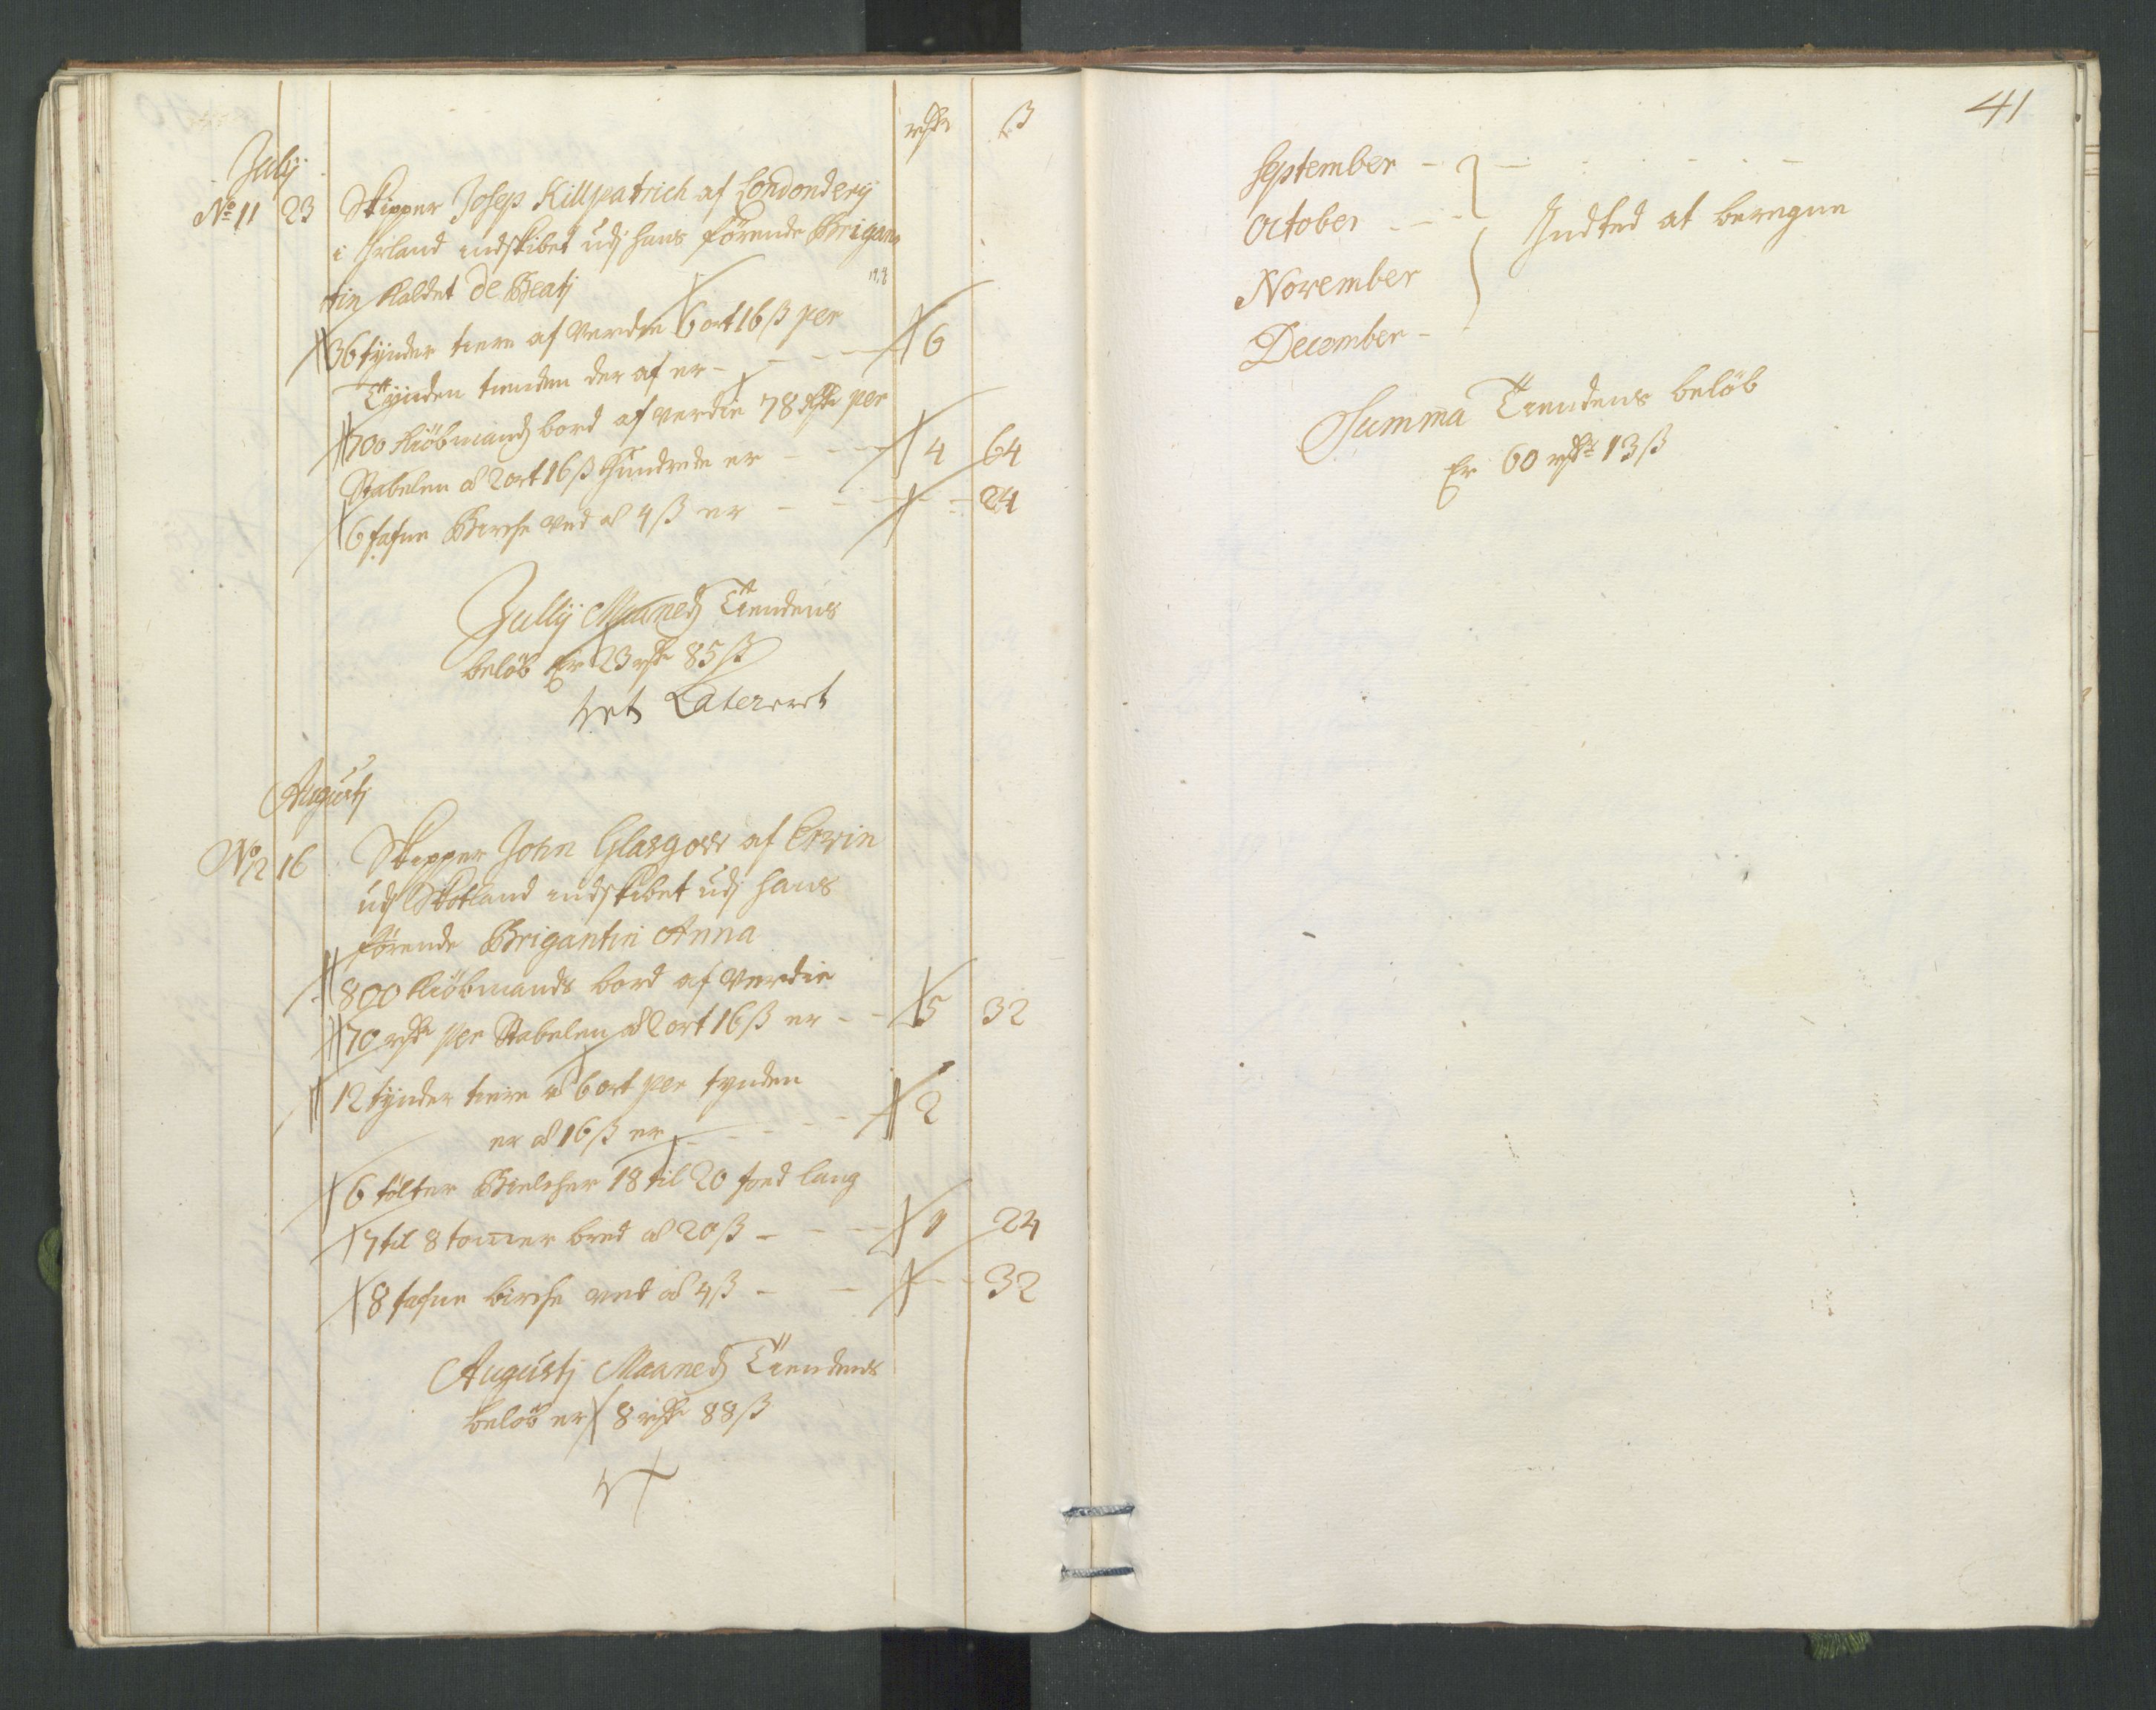 rdr ß
July
No 11 23 Skipper Josep Killpatrich af Londonderÿ
i Irland indskibet udj hans förende Brigan
tin kaldet de Beatj
36 tÿnder tiere af Verdie 6 ort 16 ß per
Tÿnden tienden der af er - - - - 6
700 kiöbmands bord af verdie 78 rdr per
Stabelen a 2 ort 16 ß Hundrede er - - - 4 64
6 fafne Birche ved a 4 ß er - - - - 24
Jullÿ Maaneds Tiendens
belöb Er 23 rdr 85 ß
ret Latereret
Augustj
No 12 16 Skipper John Glasgow af Erwin
udj Skotland indskibet udj hans
förende Brigantin Anna
800 kiöbmands bord af Verdie
70 rdr per Stabelen a 2 ort 16 ß er - - 5 32
12 tÿnder tiere a 6 ort per tynden
er a 16 ß er - - - - - 2
6 tölter Bielcher 18 til 20 foed lang
7 til 8 tommer bred a 20 ß - - - - 1 24
8 fafne birche ved a 4 ß - - - - 32
Augustj Maaneds Tiendens
belöb er 8 rdr 88 ß
rt
41
September - - - - -
October - -
November
December -
Indted at beregne
Summa Tiendens belöb
Er 60 rdr 13 ß